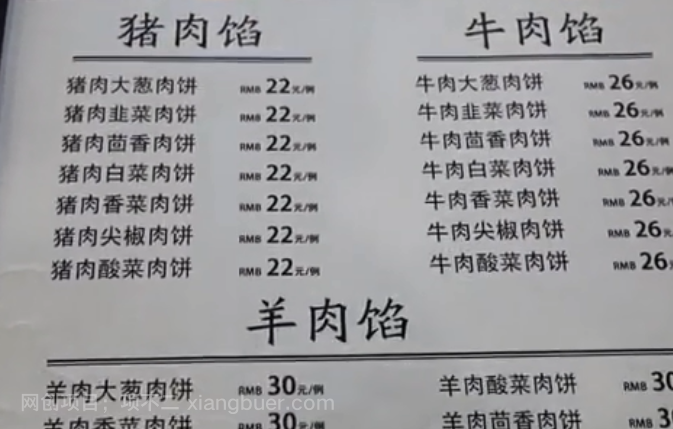 猪肉馅
猪肉大葱肉饼 RMB 22元/例
猪肉韭菜肉饼 RMB 22元/例
猪肉茴香肉饼 RMB 22元/例
猪肉白菜肉饼 RMB 22元/例
猪肉香菜肉饼 RMB 22元/例
猪肉尖椒肉饼 RMB 22元/例
猪肉酸菜肉饼 RMB 22元/例
牛肉馅
牛肉大葱肉饼 RMB 26元/例
牛肉韭菜肉饼 RMB 26元/例
牛肉茴香肉饼 RMB 26元/例
牛肉白菜肉饼 RMB 26元/例
牛肉香菜肉饼 RMB 26元/
牛肉尖椒肉饼 RMB 26元
牛肉酸菜肉饼 RMB 26元
羊肉馅
羊肉大葱肉饼 RMB 30元/例
羊肉香菜肉饼 RMB 30元/例
羊肉酸菜肉饼 RMB 30
羊肉茴香肉饼 RMB 3
网创项目，项不二 xiangbuer.com